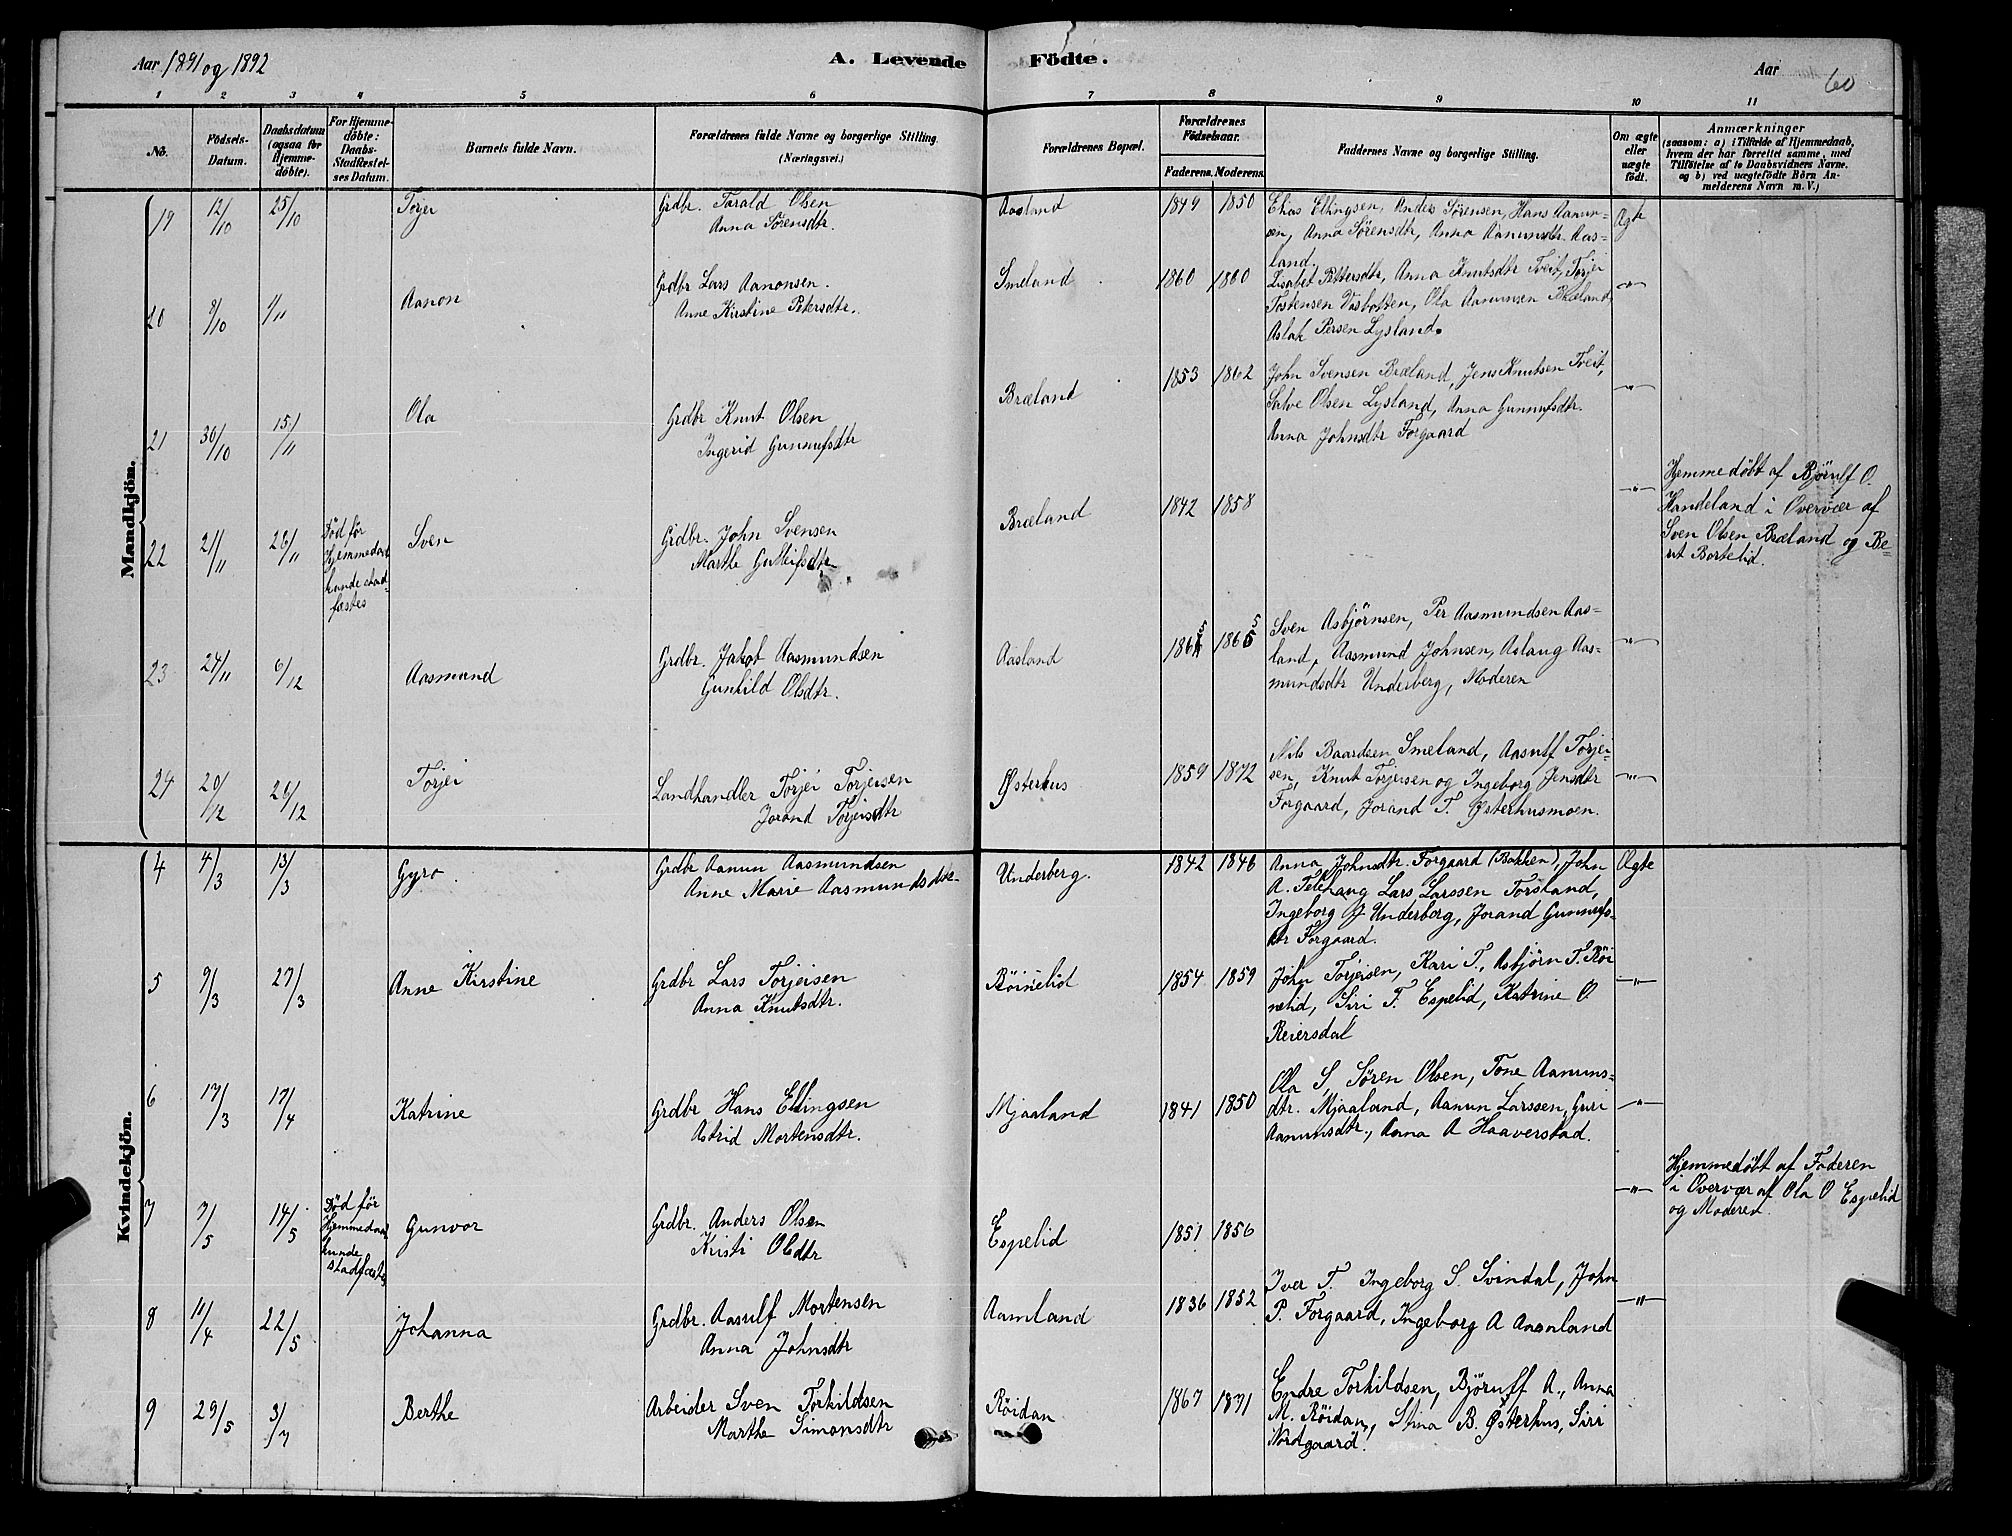 Aar 1891 og 1892
A. Levende Födte.
Aar
60
1 2 3 4 5 6 7 8 9 10 11
No.
Födsels-Datum.
Daabsdatum (ogsaa for Hjemme-döbte).
For Hjemme-döbte: Daabs-Stadfæstel-ses Datum.
Barnets fulde Navn.
Forældrenes fulde Navne og borgerlige Stilling.
(Næringsvei.)
Forældrenes Bopæl.
Forældrenes Födselsaar.
Faderens. Moderens.
Faddernes Navne og borgerlige Stilling.
Om ægte eller uægte födt.
Anmærkninger
(saasom: a) i Tilfælde af Hjemmedaab,
hvem der har forrettet samme, med
Tilföielse af to Daabsvidners Navne.
og b) ved uægtefödte Börn An-
melderens Navn m. V.)
Mandkjön.
19 12/10 25/10 Torjer
Grdbr. Torald Olsen
Anna Sörensdtr.
Aasland 1849 1850
Elias Ellingsen, Anders Sörensen, Hans Aanun-
sen, Anna Sörensdtr, Anna Aanunsdtr Aas-
land.
Ægte
20 8/10 1/11 Aanon
Grdbr Lars Aanonsen.
Anne Kirstine Petersdtr.
Smeland 1860 1860
Lisabet Pettersdtr, Anna Knutsdtr Tveit, Torjei
Tostensen Vasbotten, Ola Aanunsen Bræland,
Aslak Persen Lysland.
-"-
21 30/10 15/11 Ola
Grdbr Knut Olsen
Ingerid Gunnufsdtr
Bræland 1853 1862
John Svensen Bræland, Jens Knutsen Tveit,
Salve Olsen Lysland, Anna Gunnufsdtr.
Anna Johnsdtr Forgaard
-"-
22 21/11 26/11
Död för
Hjemmedaab
kunde stad-
fæstes
Sven
Grdbr. John Svensen
Marthe Gutleifsdtr
Bræland 1842 1858
-"-
Hjemmedöbt af Björulf O.
Handeland i Overvær af
Sven Olsen Bræland og Be-
rit Bortelid.
23 24/11 6/12 Aasmund
Grdbr. Jakob Aasmundsen
Gunhild Olsdtr.
Aasland 1865 1865
Sven Asbjörnsen, Per Aasmundsen Aas-
land, Aasmund Johnsen, Aslaug Aas-
mundsdtr Underberg, Moderen
-"-
24 20/12 26/12 Torjei
Landhandler Torjei Torjeisen
Jorand Torjeisdtr
Østerhus 1859 1872
Nils Baardsen Smeland, Aasulf Torjei-
sen, Knut Torjeisen og Ingeborg Jensdtr
Forgaard, Jorand T. Østerhusmoen.
-"-
Kvindekjön.
4 4/3 13/3 Gyro.
Grdbr Aanun Aasmundsen
Anne Marie Aasmundsdtr
Underberg. 1842 1846
Anna Johnsdtr. Forgaard (Bakken), John
A. Telehaug Lars Larssen Torsland,
Ingeborg J Underberg, Jorand Gunnufs-
dtr Forgaard.
Ægte
5 9/3 27/3 Anne Kirstine
Grdbr Lars Torjeisen
Anna Knutsdtr.
Röinelid 1854 1859
John Torjeisen, Kari T., Asbjörn T. Röi
nelid, Siri T. Espelid, Katrine O.
Reiersdal
-"-
6 17/3 17/4 Katrine
Grdbr Hans Ellingsen
Astrid Mortensdtr.
Mjaaland 1841 1850
Ola S, Sören Olsen, Tone Aanuns-
dtr. Mjaaland, Aanun Larssen, Guri
Aanunsdtr., Anna A Haaverstad.
-"-
7 7/5 14/5
Död för
Hjemmedaab
kunde
stadfæstes
Gunvor
Grdbr. Anders Olsen
Kristi Olsdtr
Espelid 1851 1856
-"-
Hjemmedöbt af Faderen
i Overvær af Ola O Espelid
og Moderen.
8 11/4 22/5 Johanna
Grdbr. Aasulf Mortensen
Anna Johnsdtr
Aamland 1836 1852
Iver T. Ingeborg S. Svindal, John
P. Forgaard, Ingeborg A Aamland
-"-
9 29/5 3/7 Berthe
Arbeider Sven Torkildsen
Marthe Simonsdtr
Röidan 1867 1871
Endre Torkildsen, Björulf A., Anna
M. Röidan, Stina B. Østerhus, Siri
Nordgaard.